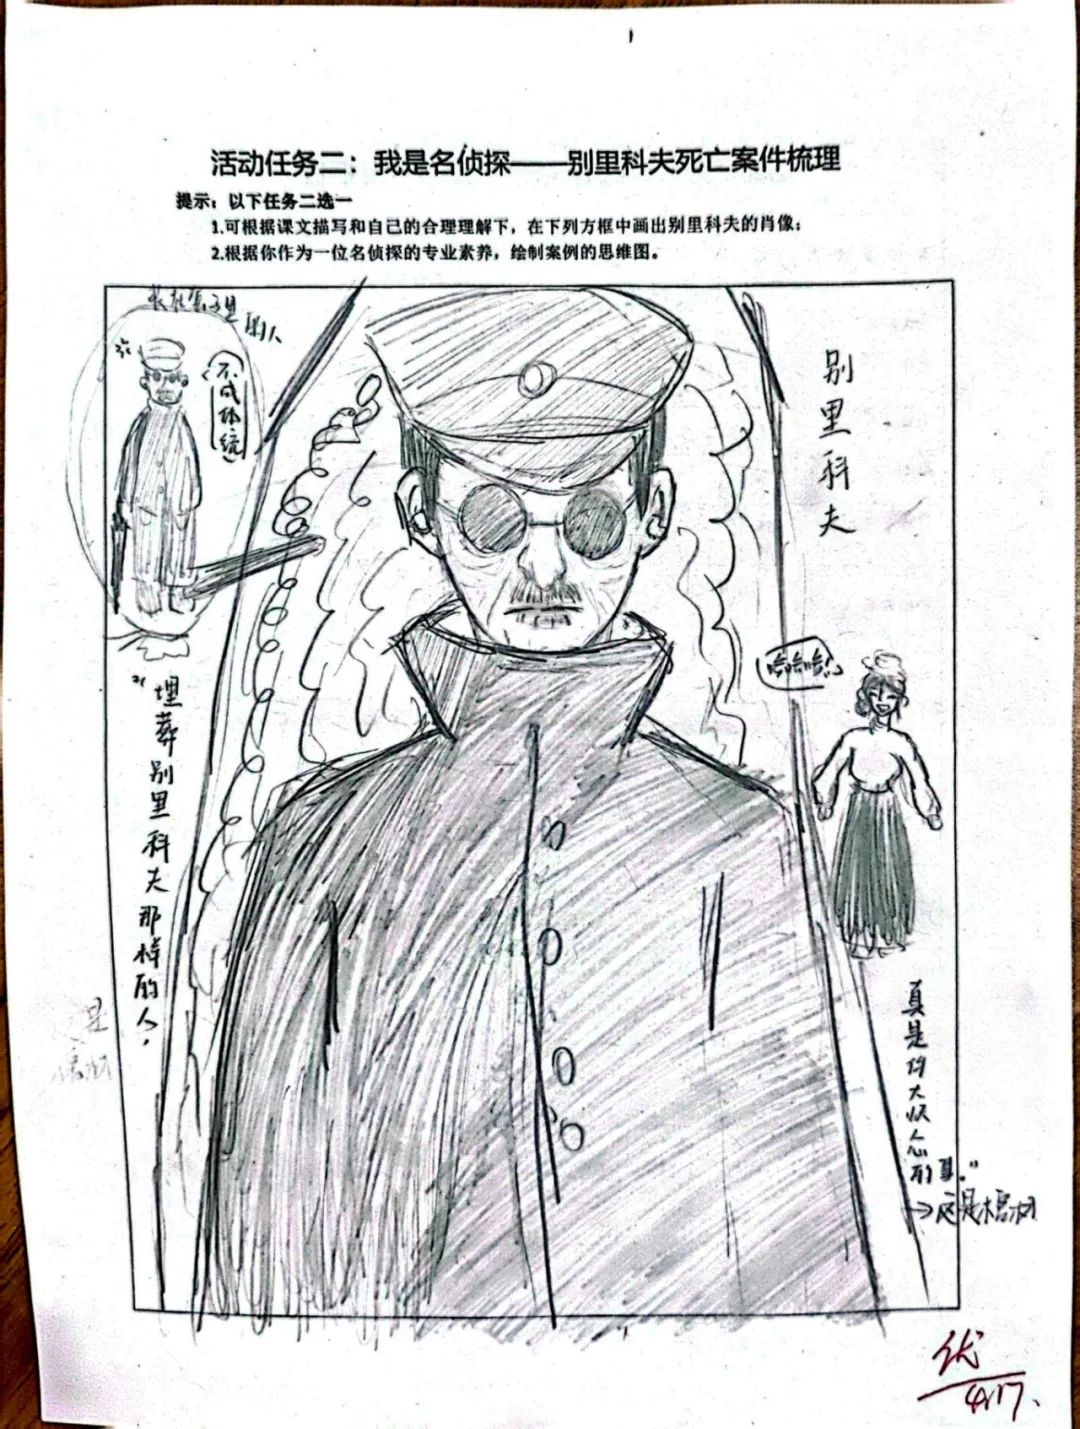 活动任务二：我是名侦探——别里科夫死亡案件梳理
提示：以下任务二选一
1.可根据课文描写和自己的合理理解下，在下列方框中画出别里科夫的肖像；
2.根据你作为一位名侦探的专业素养，绘制案例的思维图。
装在套子里的人
不成体统
别里科夫
哈哈哈！
“埋葬别里科夫那样的人，
真是件大快人心的事。”
→这是棺材
优
4.17.